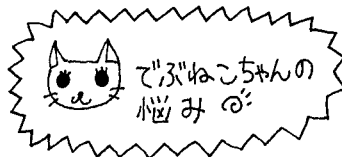 でぶねこちゃんの
悩み